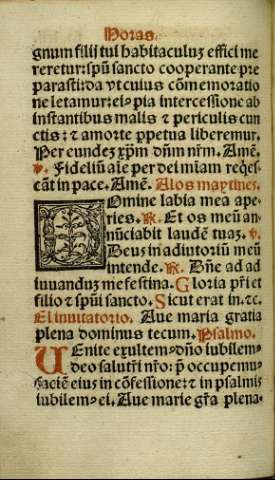 Horas.
gnum filij tui habitaculuꝫ effici me
reretur: spũ sancto cooperante pre
parasti: da vt cuius cõmemoratio
ne letamur: ei⁹ pia intercessione ab
instantibus malis ⁊ periculis cun
ctis: ⁊ a morte ꝑpetua liberemur.
Per eundeꝫ xp̃m dñm nr̃m. Amẽ.
℣. Fideliũ aĩe per dei mĩam req̃es-
cãt in pace. Amẽ. A los maytines.
Domine labia mea ape-
ries. ℟. Et os meũ an-
nũciabit laudẽ tuaꝫ. ℣.
Deus in adiutoriũ meũ
intende. ℟. Dñe ad ad
iuuanduꝫ me festina. Gloria pr̃i et
filio ⁊ spũi sancto. Sicut erat in. ⁊c.
El inuitatorio. Aue maria gratia
plena dominus tecum. Psalmo.
Uenite exultem⁹ dño iubilem⁹
deo salutr̃i nr̃o: p̃occupemu⁹
faciẽ eius in cõfessione: ⁊ in psalmis
iubilem⁹ ei. Aue marie gr̃a plena.